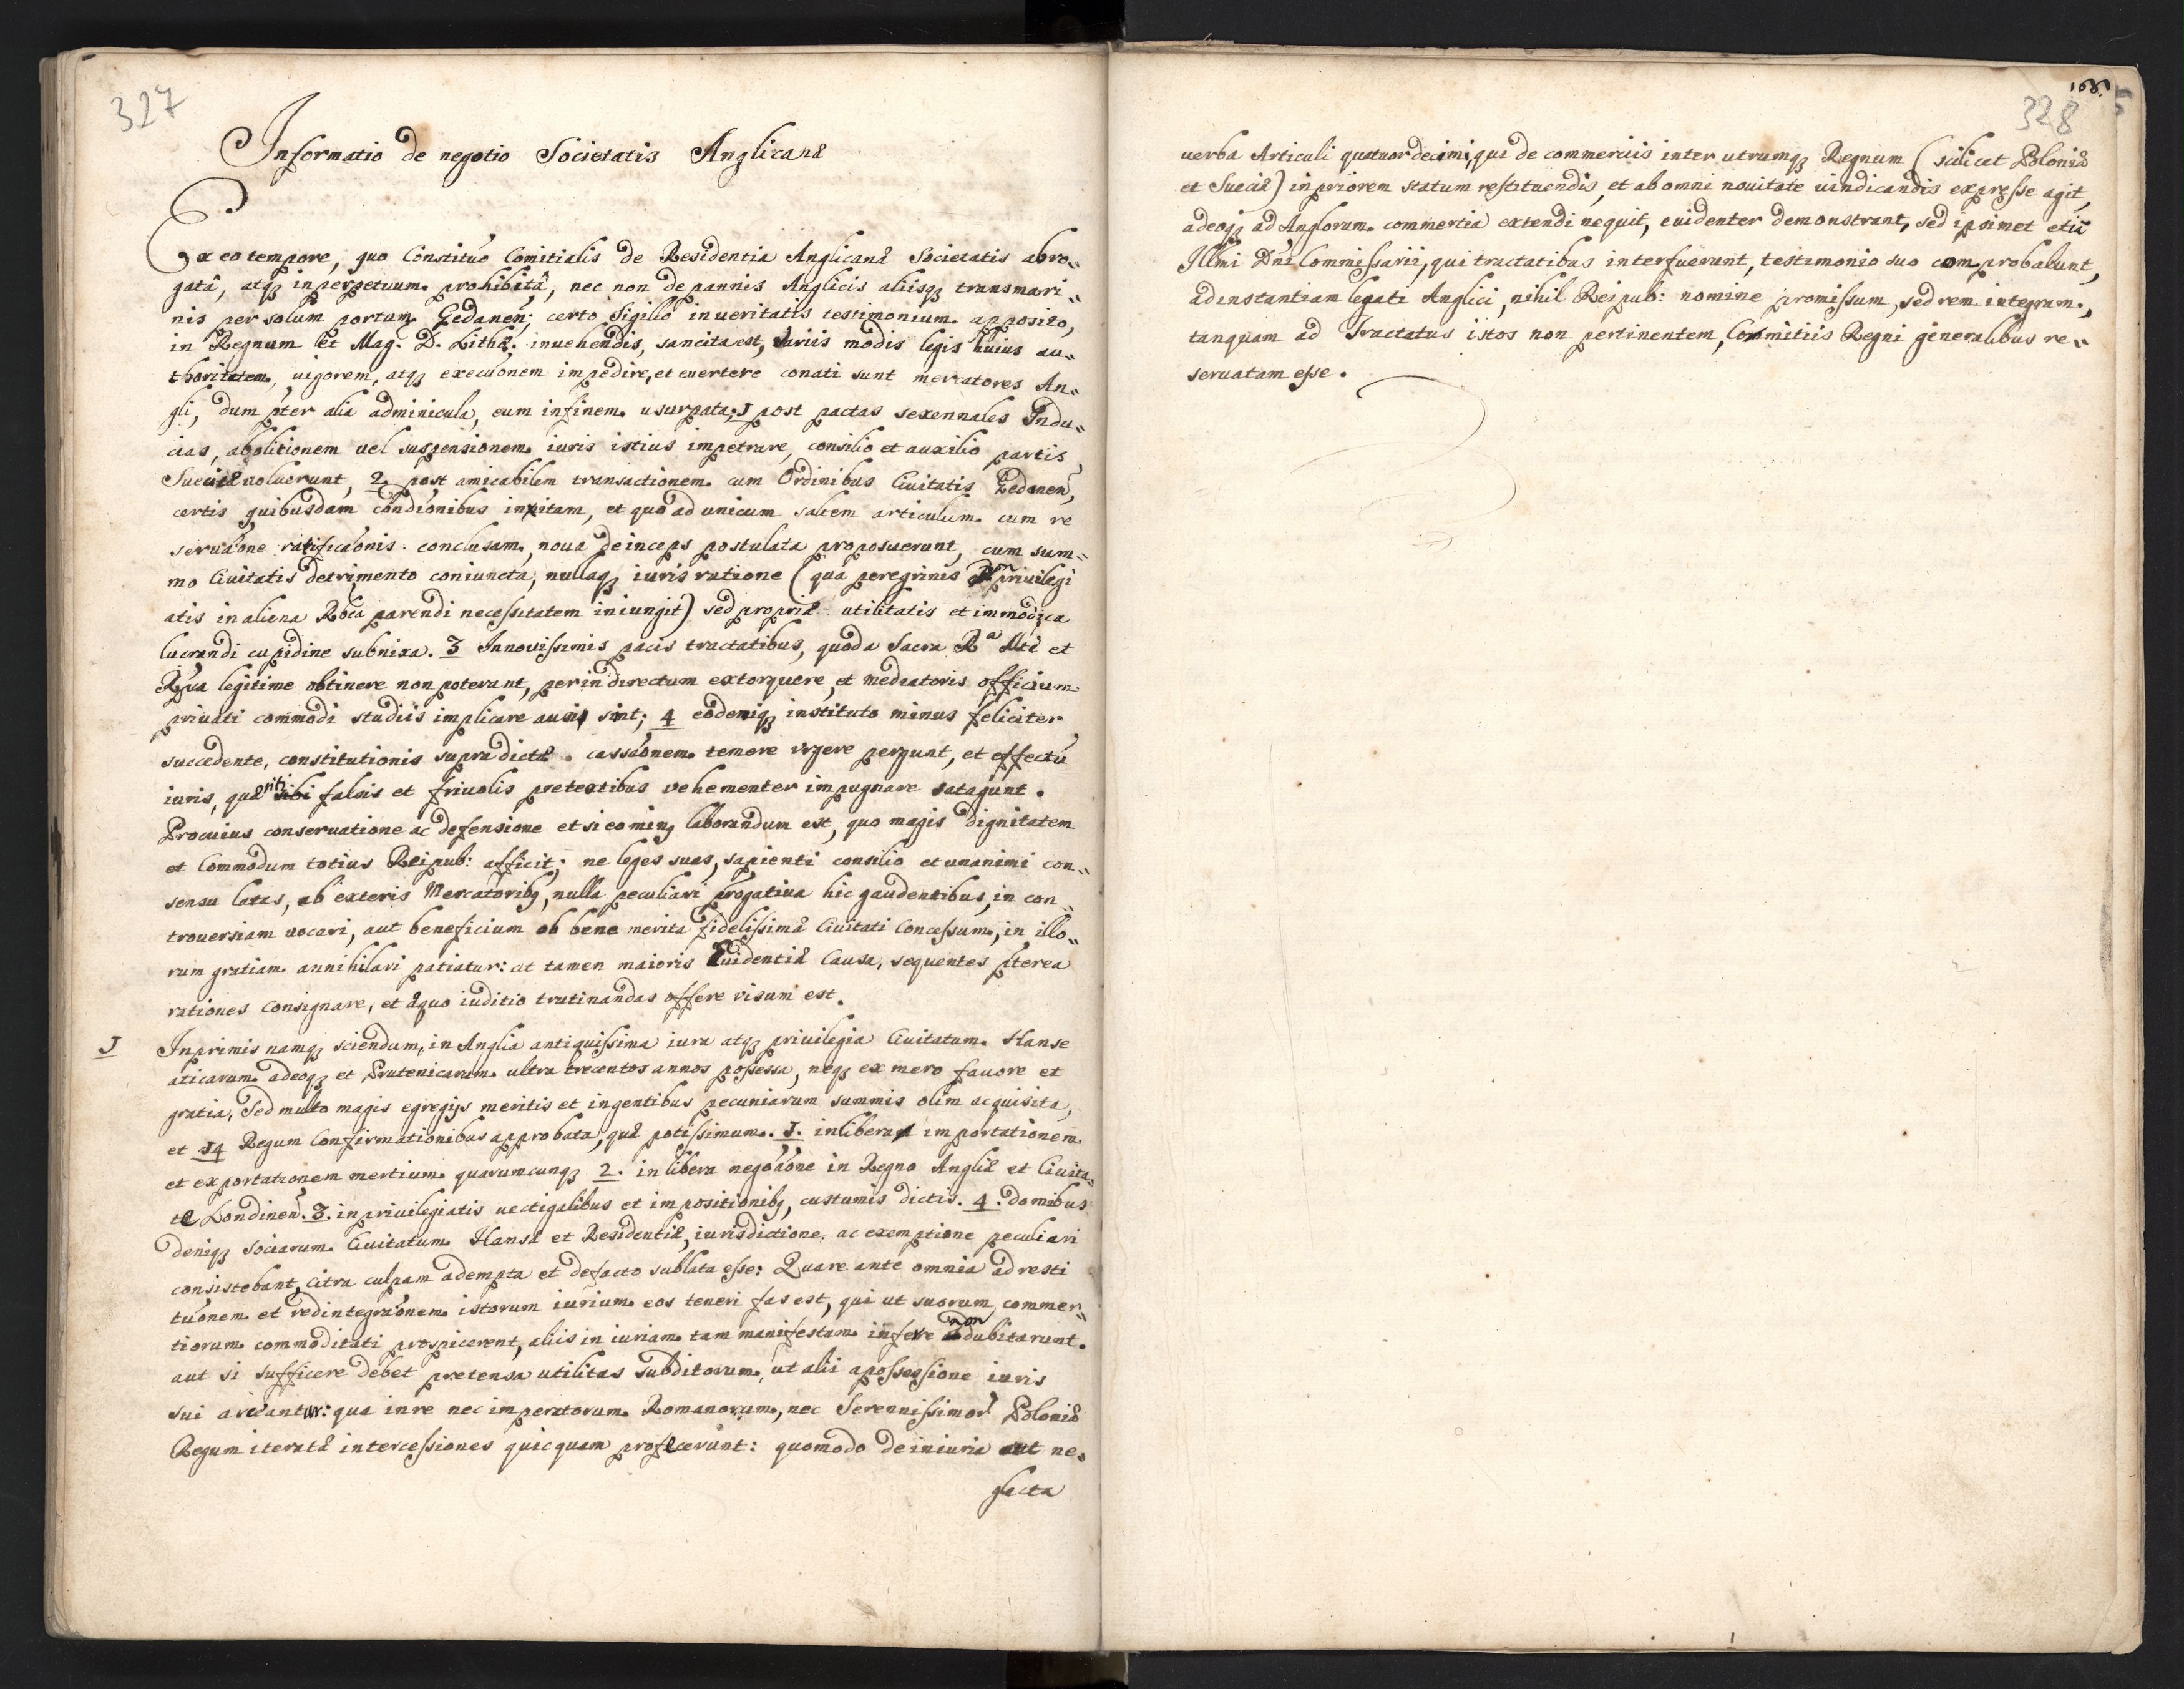 327
Informatio de negotio Societatis Anglicanæ
Ex eo tempore, quo Constitúo Comitialis de Residentia Anglicanæ Societatis abro„
gatâ, atq; in perpetuum prohibitâ, nec non de pannis Anglicis aliisq; transmari„
nis per solum portum Gedanen; certo Sigillo in ueritatis testimonium apposito,
in Regnum et Mag. D. Lithæ. inuehendis, sancita est, variis modis legis huius au„
thoritatem, uigorem, atq; execuionem impedire, et euertere conati sunt mercatores An„
gli, dum pter alia adminicula, eum in finem usurpata; 1 post pactas sexennales Indu„
cias, abolitionem uel suspensionem iuris istius impetrare, consilio et auxilio partis
Sueciæ uoluerunt, 2. post amicabilem transactionem cum Ordinibus Ciuitatis Gedanen,
certis quibusdam condionibus initam, et quo ad unicum saltem articulum cum re
seruaone ratificaonis conclusam, noua deinceps postulata proposuerunt, cum sum„
mo Ciuitatis detrimento coniuncta, nullaq; iuris ratione (qua peregrinis non priuilegi
atis in aliena Rbca parendi necessitatem iniungit) sed propriæ utilitatis et immodica
lucrandi cupidine subnixa. 3 In nouissimis pacis tractatibus, quod a Sacra Rᵃ Mte et
Rpca legitime obtinere non poterant, per indirectum extorquere, et mediatoris officium
priuati commodi studiis implicare ausi sint; 4 eodemq; instituto minus feliciter
succedente, constitutionis supradictæ cassaonem temere urgere pergunt, et effectū
iuris, quæsiti falsis et friuolis pretextibus vehementer impugnare satagunt.
Pro cuius conseruatione ac defensione etsi eo minq; laborandum est, quo magis dignitatem
et Commodum totius Reipub: afficit; ne leges suas, sapienti consilio et unanimi con„
sensu latas, ab exteris Mercatoribq; nulla peculiari progatiua hic gaudentibus, in con„
trouersiam uocari, aut beneficium ob bene merita fidelissimæ Ciuitati Concessum, in illo„
rum gratiam annihilari patiatur: at tamen maioris Euidentiæ Causa, sequentes pterea
rationes Consignare, et æquo iuditio trutinandas offere visum est.
1 Inprimis namq; sciendum, in Anglia antiquissima iura atq; priuilegia Ciuitatum Hanse
aticarum adeoq; et Prutenicarum ultra trecentos annos possessa, neq; ex mero fauore et
gratia, Sed multo magis egregijs meritis et ingentibus pecuniarum summis olim acquisita,
et 14 Regum Confirmationibus approbata, quæ potissimum. 1. in libera importationem
et exportationem mertium quarumcunq; 2. in libera negoaone in Regno Angliæ et Ciuita„
te Londinen. 3. in priuilegiatis uectigalibus et impositionibq; custumis dictis. 4. domibus
deniq; sociarum Ciuitatum Hansæ et Residentiæ, iurisdictione, ac exemptione peculiari
consistebant, citra culpam adempta et de facto sublata esse: Quare ante omnia ad resti
tuonem et redintegraonem istorum iurium eos teneri fas est, qui ut suorum commer„
tiorum commoditati prospicerent, aliis iniuriam tam manifestam infere non dubitarunt.
aut si sufficere debet pretensa utilitas subditorum, ut alii a possessione iuris
sui arceantur: qua in re nec imperatorum Romanorum, nec Serennissimor Poloniæ
Regum iteratæ intercessiones quicquam profecerunt: quomodo de iniuria aut ne„
facta
168.
328
uerba Articuli quatuordecimi, qui de commerciis inter utrumq; Regnum (scilicet Poloniæ
et Sueciæ) in priorem statum restituendis, et ab omni nouitate uindicandis expresse agit,
adeoq; ad Anglorum commertia extendi nequit, euidenter demonstrant, sed ipsimet etiā
Illmi Dni Commissarii, qui tractatibus interfuerunt, testimonio suo comprobabunt,
ad instantiam legati Anglici, nihil Reipub: nomine promissum, sed rem integram,
tanquam ad Tractatus istos non pertinentem, Commitiis Regni generalibus re„
seruatam esse.